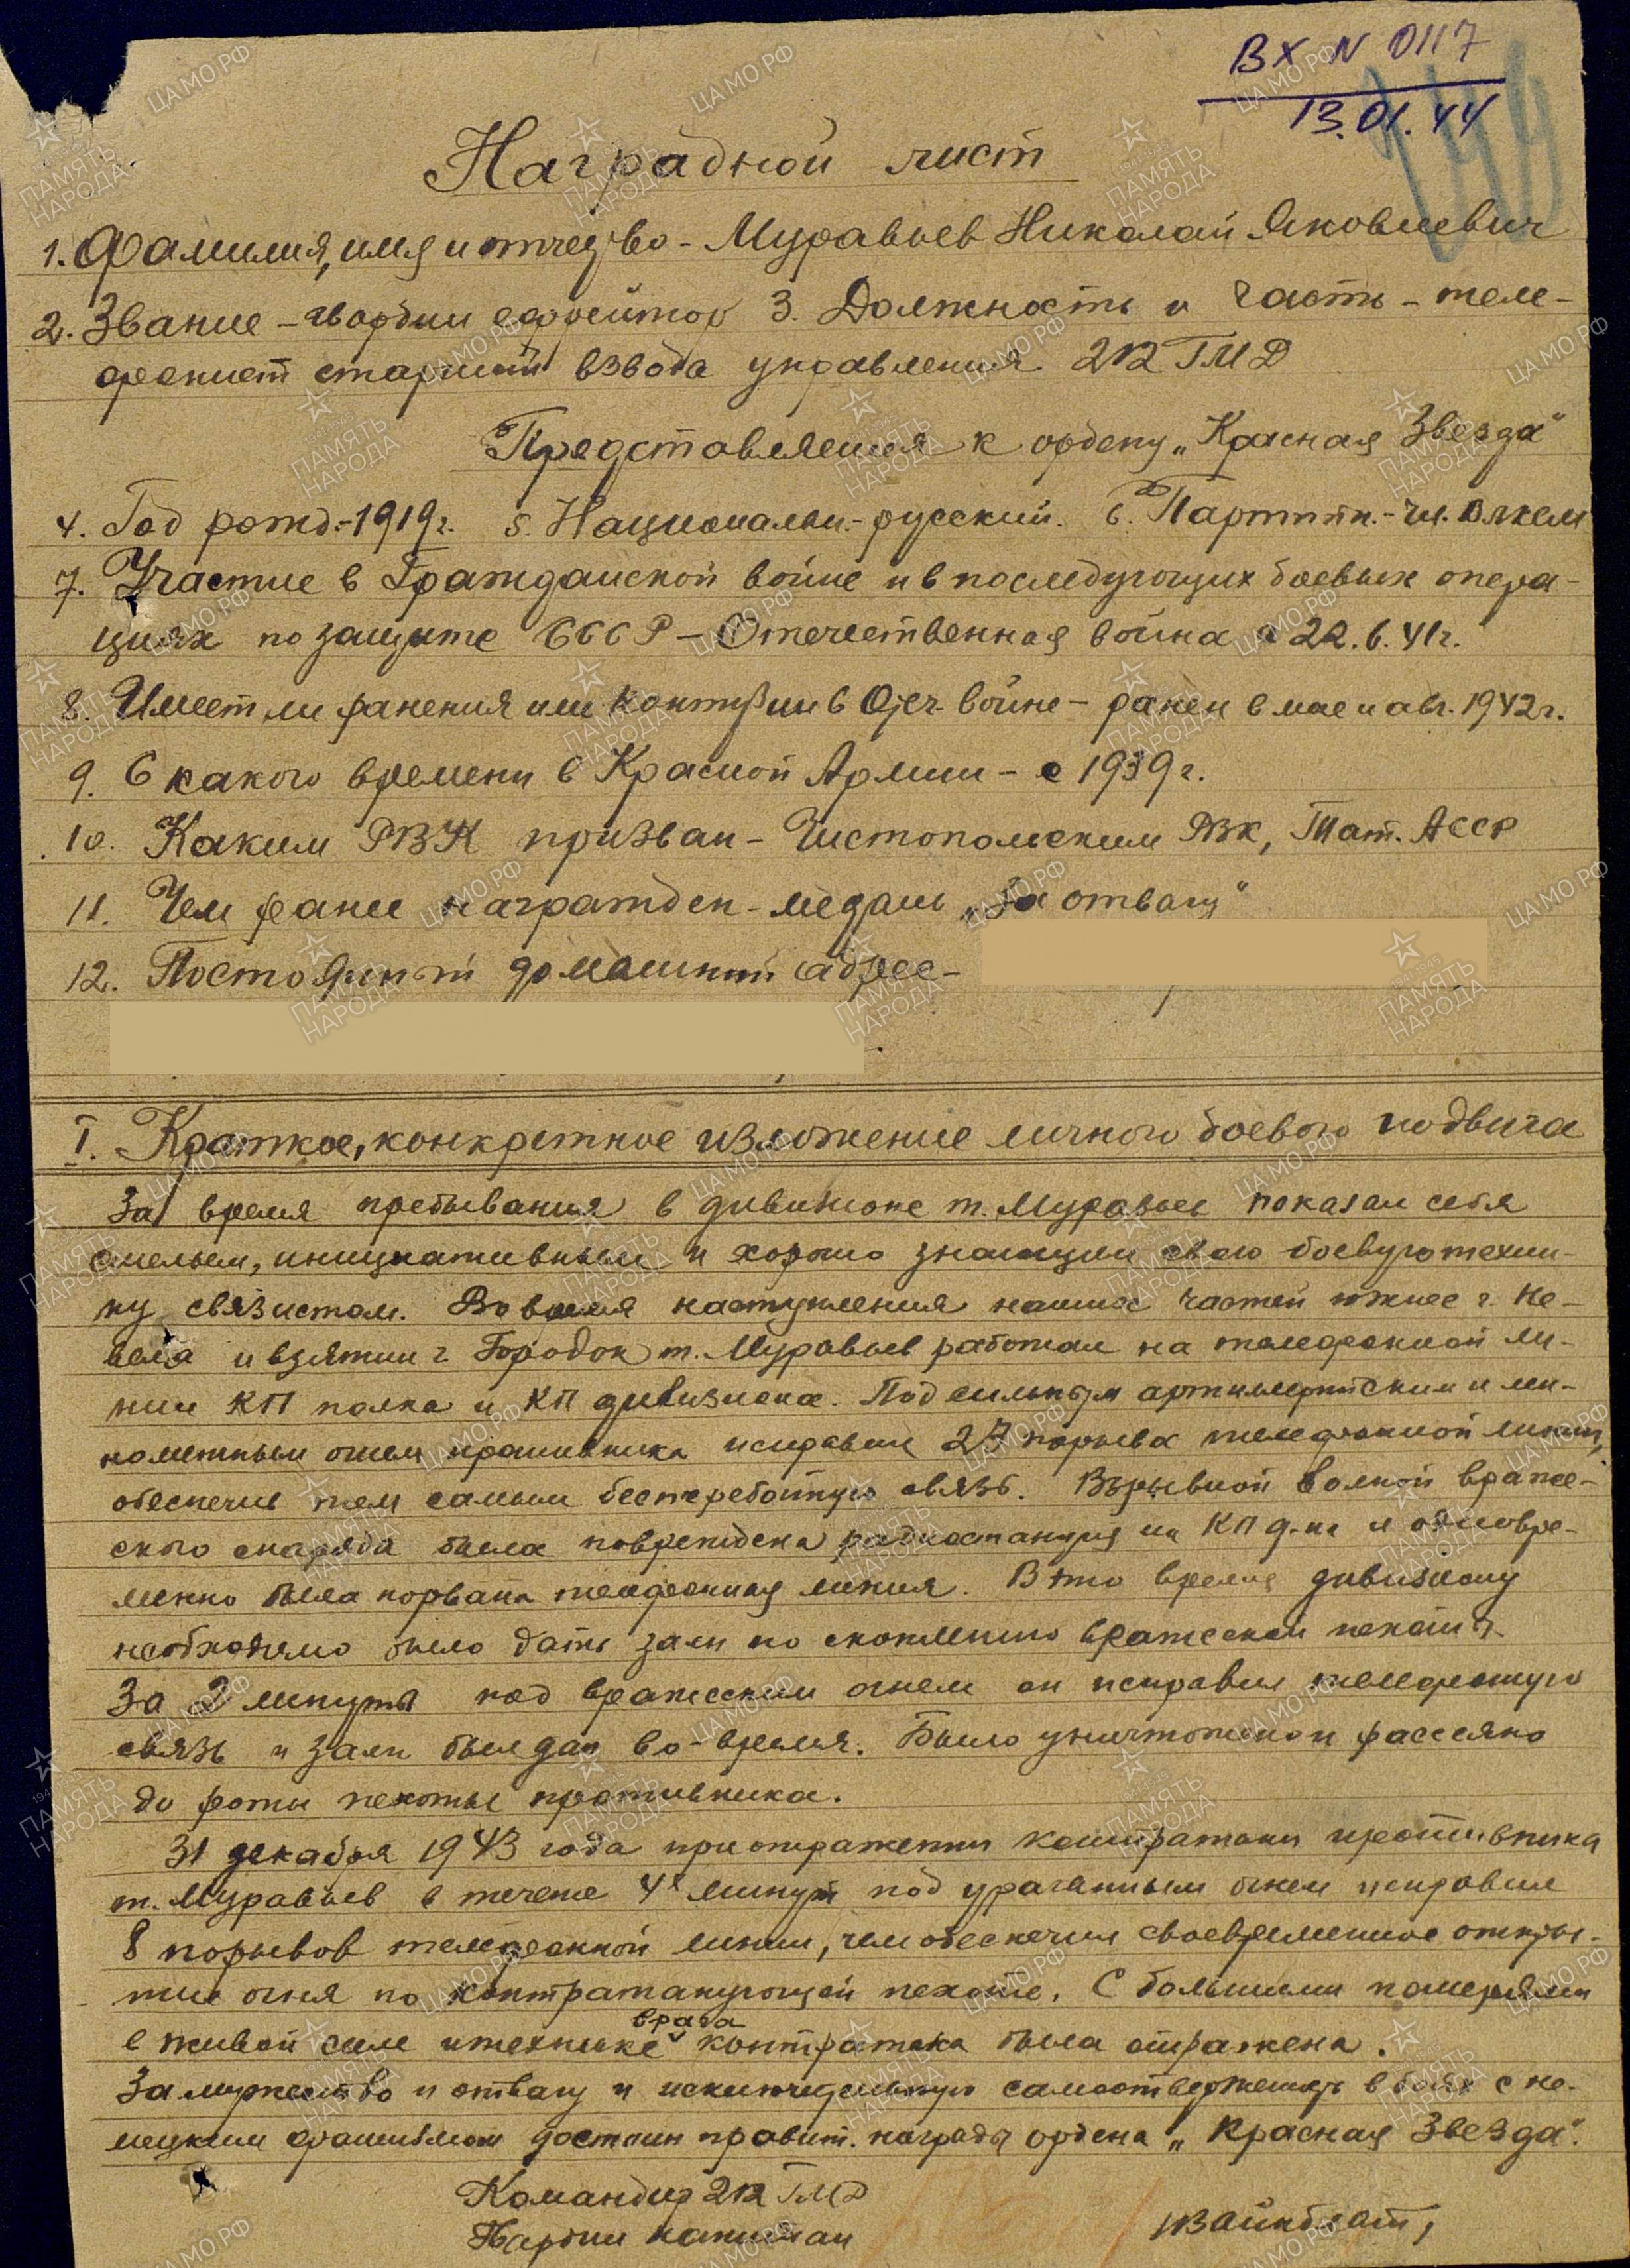 ВХ N 0117
13.01.44
Наградной лист
1. Фамилия, имя и отчество - Муравьев Николай Яковлевич
2. Звание - гвардии ефрейтор 3. Должность и часть - теле-
фонист старший взвода управления 212 ГМД
Представляется к ордену „Красная Звезда"
4. Год рожд. - 1919 г. 5. Национальн. - русский. 6. Партийн. - чл. ВЛКСМ
7. Участие в Гражданской войне и в последующих боевых опера-
циях по защите СССР - Отечественная война с 22.6.41г.
8. Имеет ли ранения или контузии в Отеч. войне - ранен в мае и авг. 1942г.
9. С какого времени в Красной Армии - с 1939 г.
10. Каким РВК призван - Чистопольским РВК, Тат. АССР
11. Чем ранее награжден - медаль „За отвагу"
12. Постоянный домашний адрес -
I. Краткое, конкретное изложение личного боевого подвига
За время пребывания в дивизионе т. Муравьев показал себя
смелым, инициативным и хорошо знающим свою боевую техни-
ку связистом. Во время наступления наших частей южнее г. Не-
веля и взятии г. Городок т. Муравьев работал на телефонной ли-
нии КП полка и КП дивизиона. Под сильным артиллерийским и ми-
нометным огнем противника исправил 27 порыва телефонной линии,
обеспечив тем самым бесперебойную связь. Взрывной волной враже-
ского снаряда была повреждена радиостанция на КП д-на и одновре-
менно была порвана телефонная линия. В это время дивизиону
необходимо было дать залп по скоплению вражеской пехоты.
За 2 минуты под вражеским огнем он исправил телефонную
связь и залп был дан во-время. Было уничтожено и рассеяно
до роты пехоты противника.
31 декабря 1943 года при отражении контратаки противника
т. Муравьев в течение 4х минут под ураганным огнем исправил
8 порывов телефонной линии, чем обеспечил своевременное откры-
тие огня по контратакующей пехоте. С большими потерями
в живой силе и технике врага контратака была отражена.
За мужество и отвагу и исключительную самоотверженность в боях с не-
мецким фашизмом достоин правит. награды ордена „Красная Звезда".
Командир 212 ГМД
Гвардии капитан